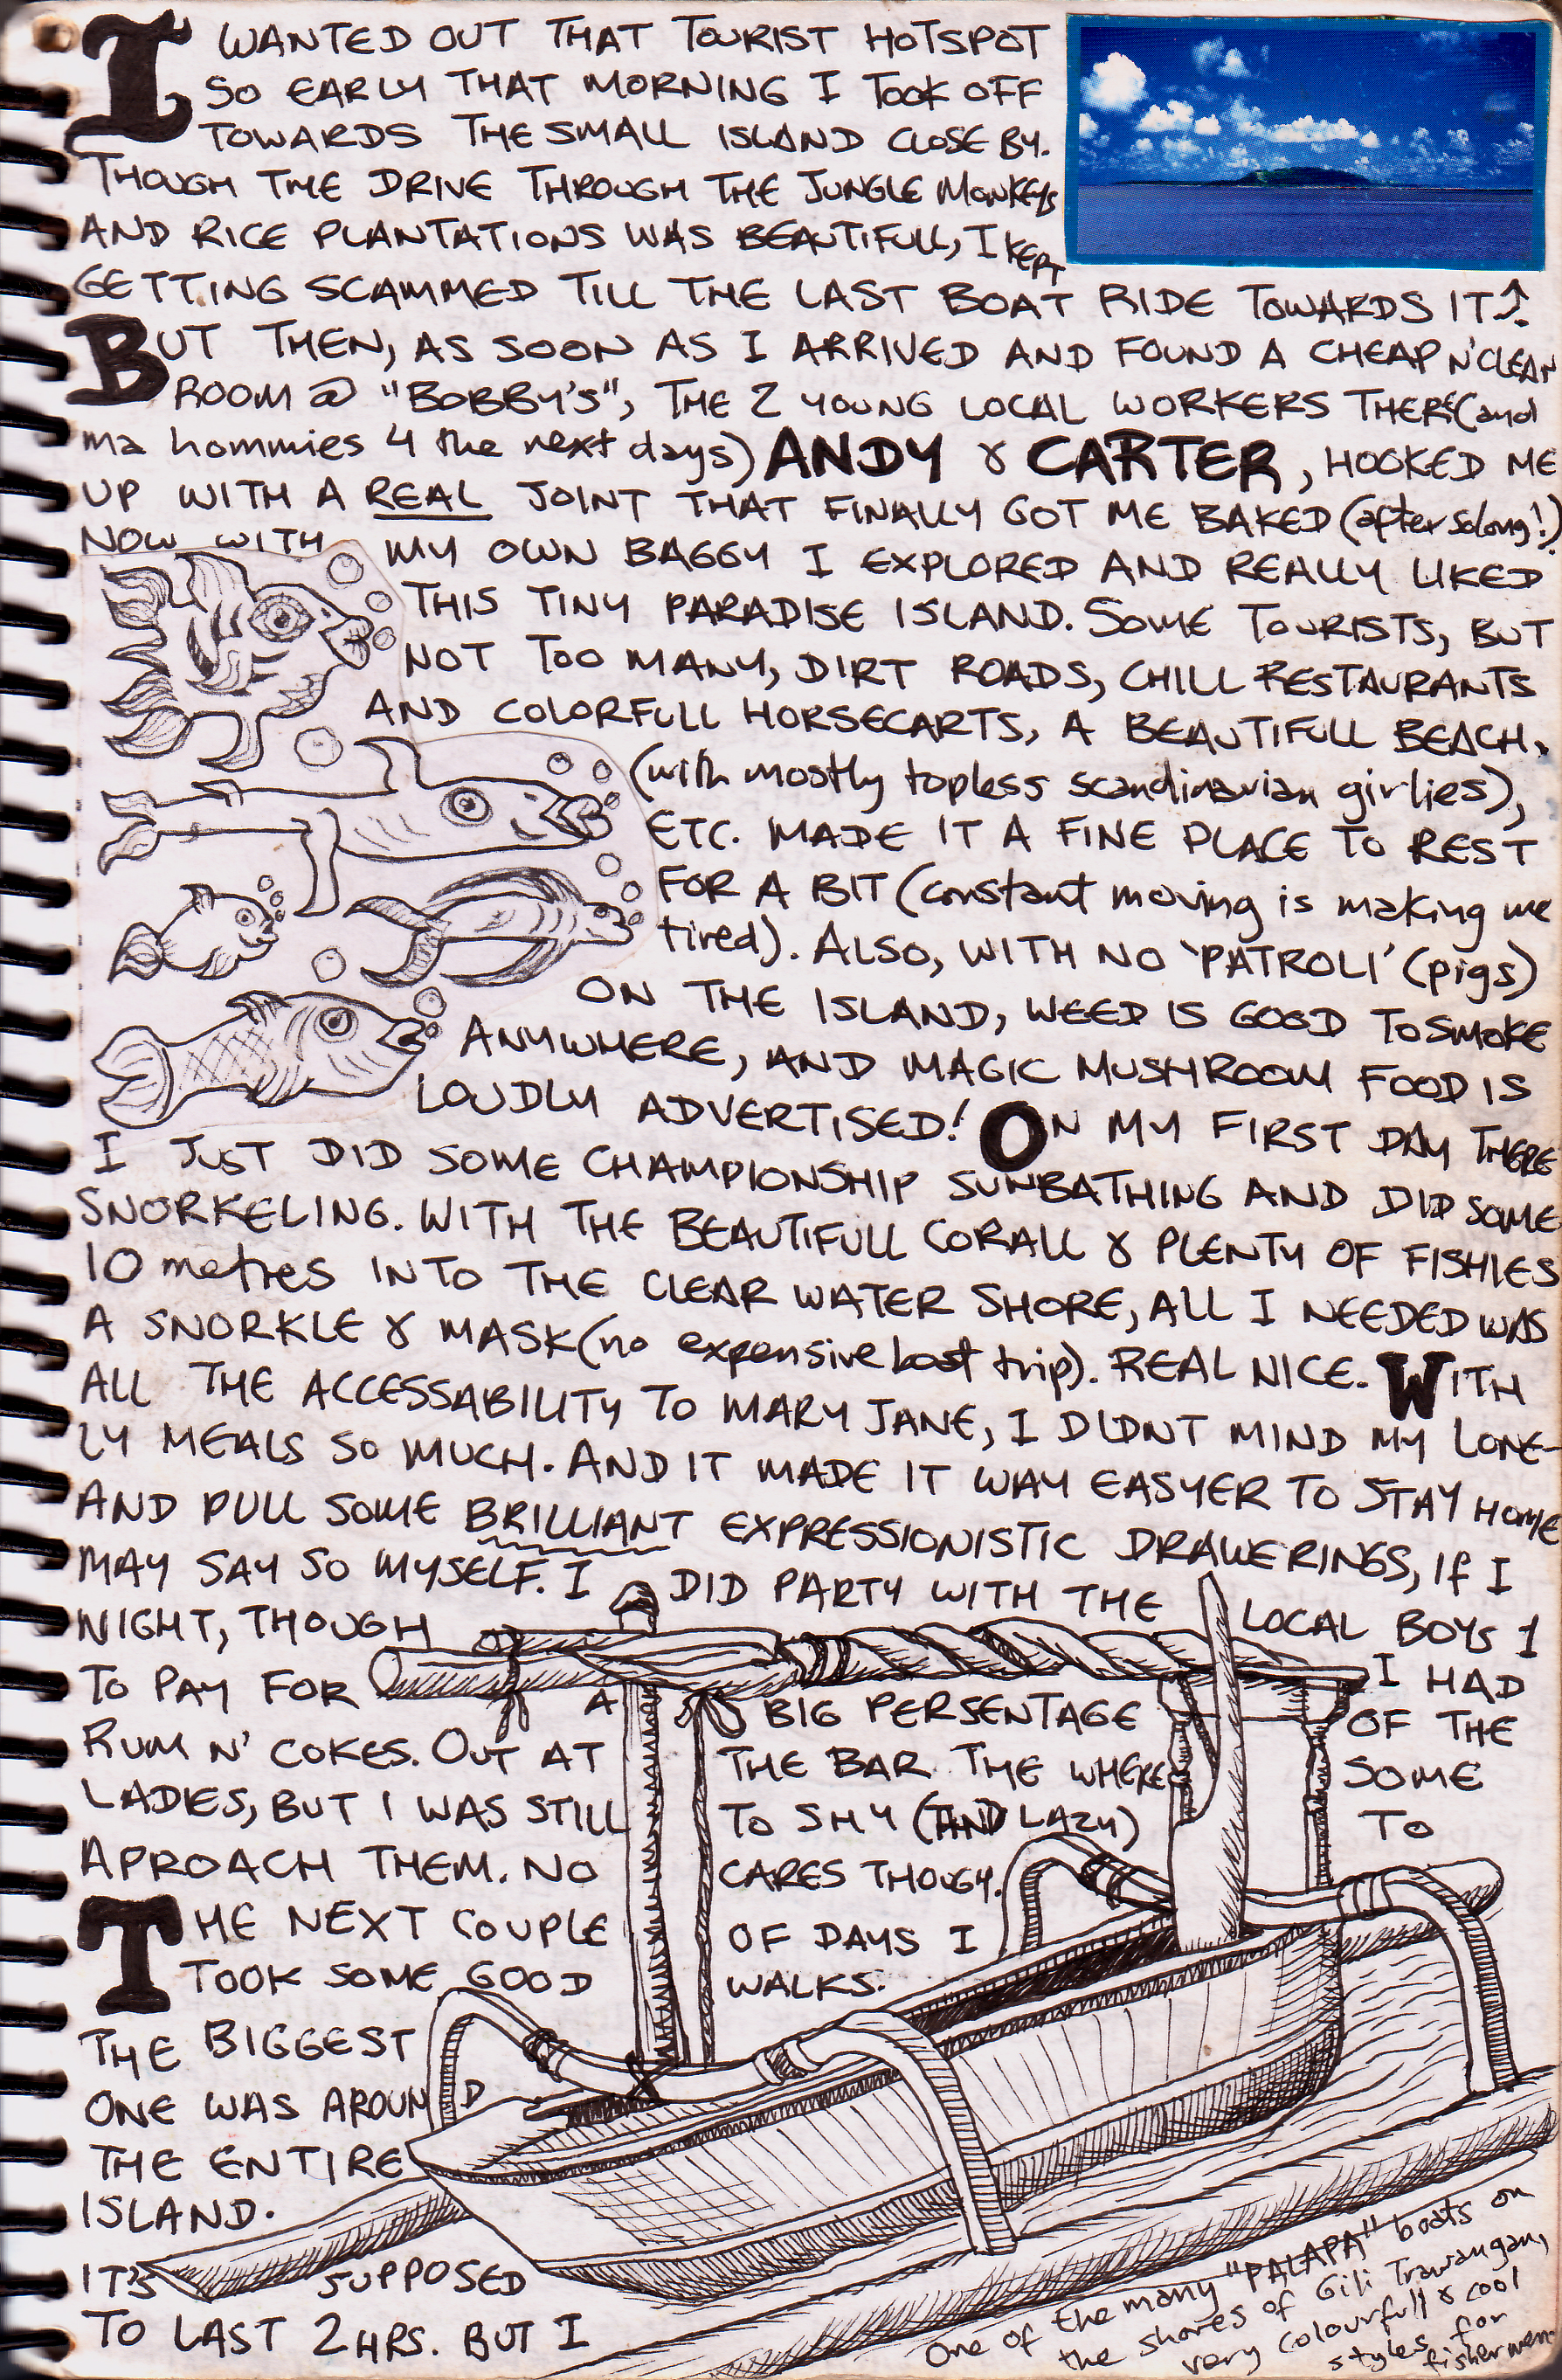 I WANTED OUT THAT TOURIST HOTSPOT
SO EARLY THAT MORNING I TOOK OFF
TOWARDS THE SMALL ISLAND CLOSE BY.
THOUGH THE DRIVE THROUGH THE JUNGLE MONKEYS
AND RICE PLANTATIONS WAS BEAUTIFULL, I KEPT
GETTING SCAMMED TILL THE LAST BOAT RIDE TOWARDS IT↑.
BUT THEN, AS SOON AS I ARRIVED AND FOUND A CHEAP N' CLEAN
ROOM @ "BOBBY'S", THE 2 YOUNG LOCAL WORKERS THERE (and
ma hommies 4 the next days) ANDY & CARTER, HOOKED ME
UP WITH A REAL JOINT THAT FINALLY GOT ME BAKED (after so long!)
NOW WITH MY OWN BAGGY I EXPLORED AND REALLY LIKED
THIS TINY PARADISE ISLAND. SOME TOURISTS, BUT
NOT TOO MANY, DIRT ROADS, CHILL RESTAURANTS
AND COLORFULL HORSECARTS, A BEAUTIFULL BEACH,
(with mostly topless scandinavian girlies),
ETC. MADE IT A FINE PLACE TO REST
FOR A BIT (constant moving is making me
tired). ALSO, WITH NO 'PATROLI' (pigs)
ON THE ISLAND, WEED IS GOOD TO SMOKE
ANYWHERE, AND MAGIC MUSHROOM FOOD IS
LOUDLY ADVERTISED! ON MY FIRST DAY THERE
I JUST DID SOME CHAMPIONSHIP SUNBATHING AND DID SOME
SNORKELING. WITH THE BEAUTIFULL CORALL & PLENTY OF FISHIES
10 metres INTO THE CLEAR WATER SHORE, ALL I NEEDED WAS
A SNORKLE & MASK (no expensive boat trip). REAL NICE. WITH
ALL THE ACCESSABILITY TO MARY JANE, I DIDNT MIND MY LONE-
LY MEALS SO MUCH. AND IT MADE IT WAY EASYER TO STAY HOME
AND PULL SOME BRILLIANT EXPRESSIONISTIC DRAWERINGS, If I
MAY SAY SO MYSELF. I DID PARTY WITH THE LOCAL BOYS 1
NIGHT, THOUGH I HAD
TO PAY FOR A BIG PERSENTAGE OF THE
RUM N' COKES. OUT AT THE BAR THE WHERE SOME
LADIES, BUT I WAS STILL TO SHY (AND LAZY) TO
APROACH THEM. NO CARES THOUGY.
THE NEXT COUPLE OF DAYS I
TOOK SOME GOOD WALKS.
THE BIGGEST
ONE WAS AROUND
THE ENTIRE
ISLAND.
IT'S SUPPOSED
TO LAST 2 HRS. BUT I
One of the many "PALAPA" boats on
the shores of Gili Trawangan,
very colourfull & cool
styles for
fishermen.